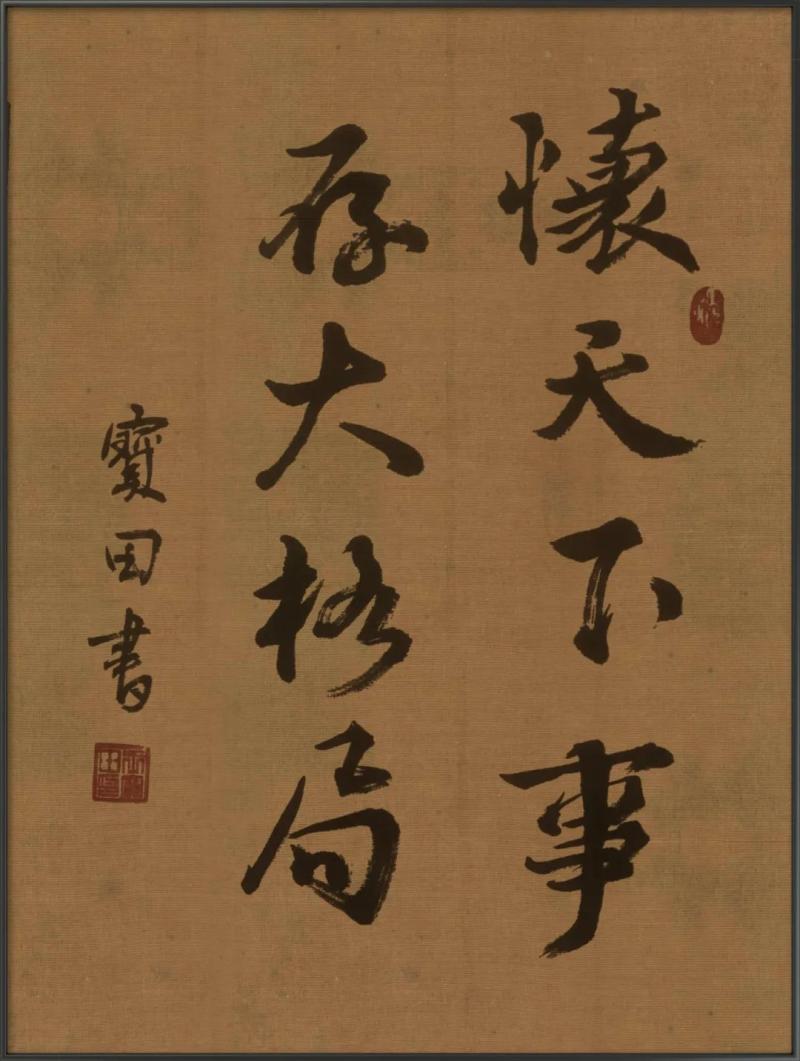 懷天下事
存大格局
寶田書